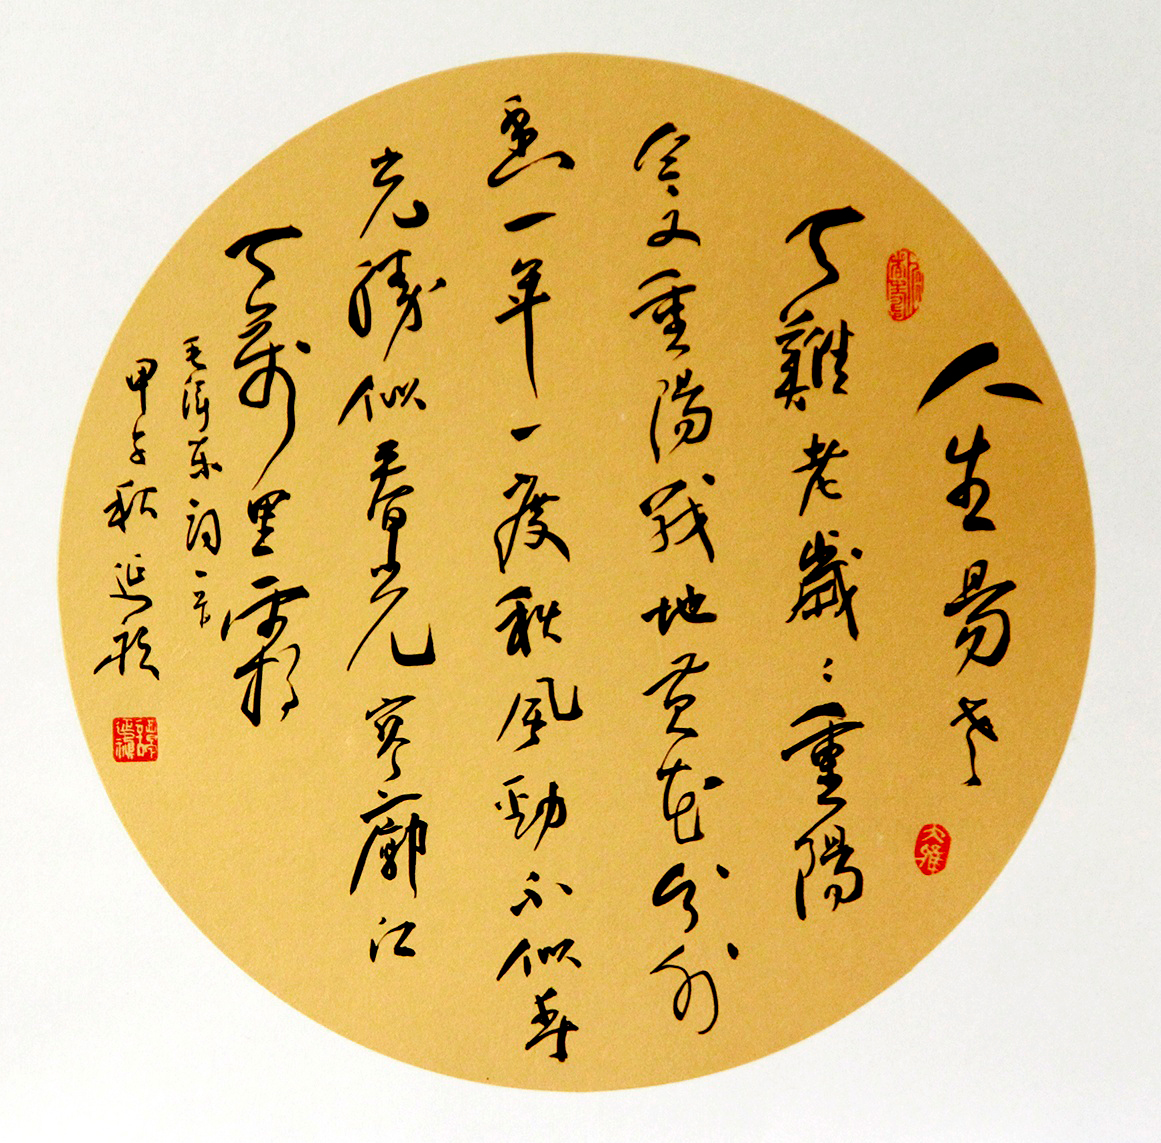 人生易老
天難老歲〻重陽
今又重陽戰地黄花分外
香一年一度秋風勁不似春
光勝似春光寥廓江
天萬里霜
毛澤东詞一首
甲午秋延
大雅